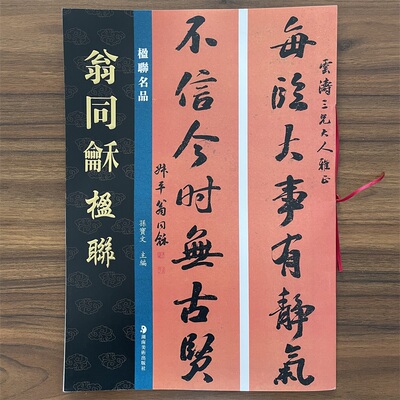 翁同龢楹聯
楹聯名品
孫寶文 主編
湖南美術出版社
雲濤三兄大人雅正
每臨大事有靜氣
不信今时無古賢
叔平翁同龢